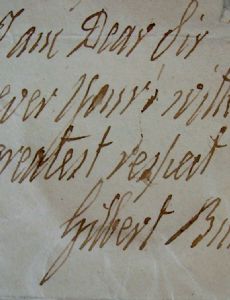 I am Dear Sir
ever Your's with
greatest respect
Gilbert